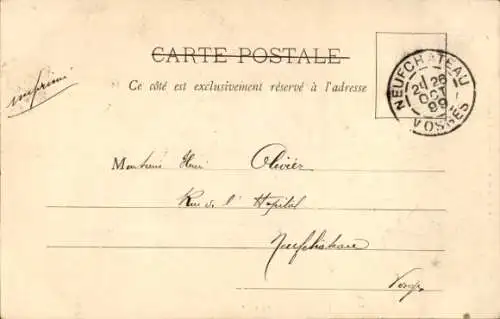 CARTE POSTALE
Ce côté est exclusivement réservé à l'adresse
imprimé
NEUFCHATEAU
2E 26
OCT
99
VOSGES
Monsieur Henri Olivier
Rue de l'Hopital
Neufchateau
Vosges